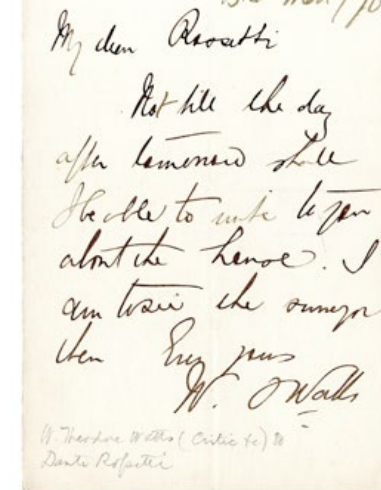 My dear Rossetti
Not till the day
after tomorrow shall
I be able to write to you
about the house. I
am to see the surveyor
then Ever yours
W. T Watts
W. Theodore Watts (Critic &c) to
Dante Rossetti